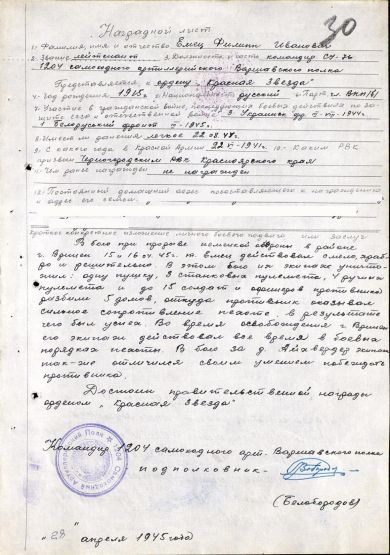 30
Наградной лист
1. Фамилия, имя и отчество Емец Филипп Иванович
2. Звание лейтенант 3. Должность и часть командир СУ-76
1204 самоходного артиллерийского Варшавского полка
Представляется к ордену „Красная Звезда"
4. Год рождения 1915г. 5. Национальность русский 6. Парт. чл ВКП(б)
7. Участие в гражданской войне, последующих боевых действиях по за-
щите СССР и отечественной войне 3 Украинск. фр.
1 Белорусский фронт 1945г.
8. Имеет ли ранения легкое
9. С какого года в Красной Армии 1941г. 10. Каким РВК
призван Черногорским РВК Красноярского края
11. Чем ранее награжден не награжден
12. Постоянный домашний адрес представляемого к награждению
и адрес его семьи
Краткое конкретное изложение личного боевого подвига или заслуг
В бою при прорыве немецкой обороны в районе
г. Врицен 15 и 16.04.45г. т. Емец действовал смело, храб-
ро и решительно. В этом бою их экипаж уничто-
жил: одну пушку, 3 станковых пулемета, 4 ручных
пулемета и до 15 солдат и офицеров противника,
разбили 5 домов, откуда противник оказывал
сильное сопротивление пехоте, в результате
чего был успех. Во время освобождения г. Врицен
его экипаж действовал все время в боевых
порядках пехоты. В бою за д. экипаж
так-же отличился своим умением побеждать
противника.
Достоин правительственной награды
орденом „Красная Звезда"
Командир 1204 самоходного арт. Варшавского полка
подполковник-
(Белобородов)
"28" апреля 1945 года